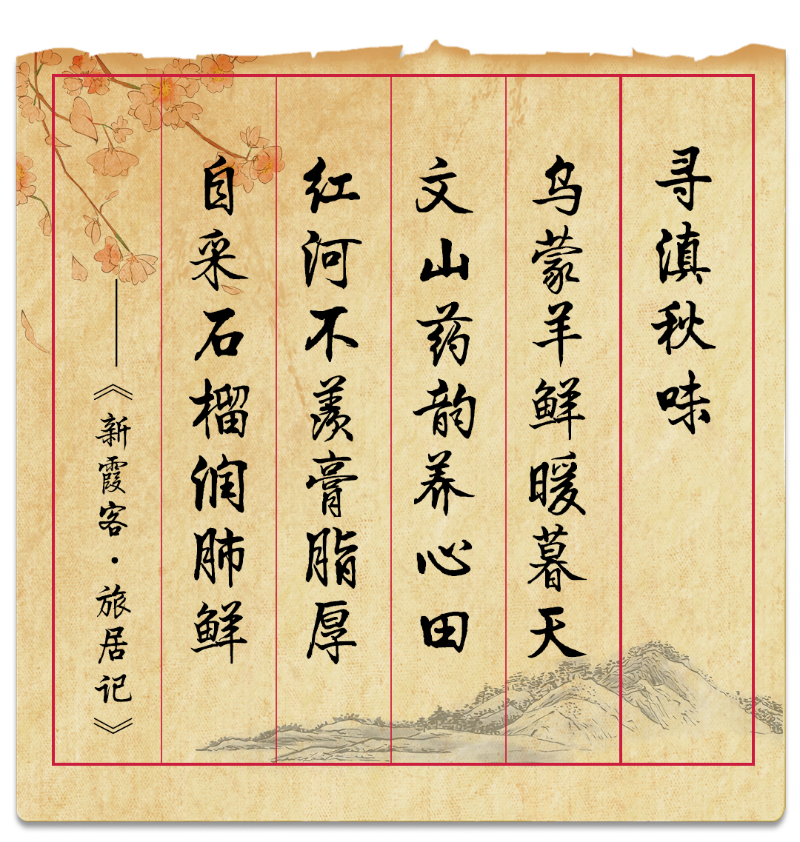 寻滇秋味
乌蒙羊鲜暖暮天
文山药韵养心田
红河不羡膏脂厚
自采石榴润肺鲜
——《新霞客·旅居记》